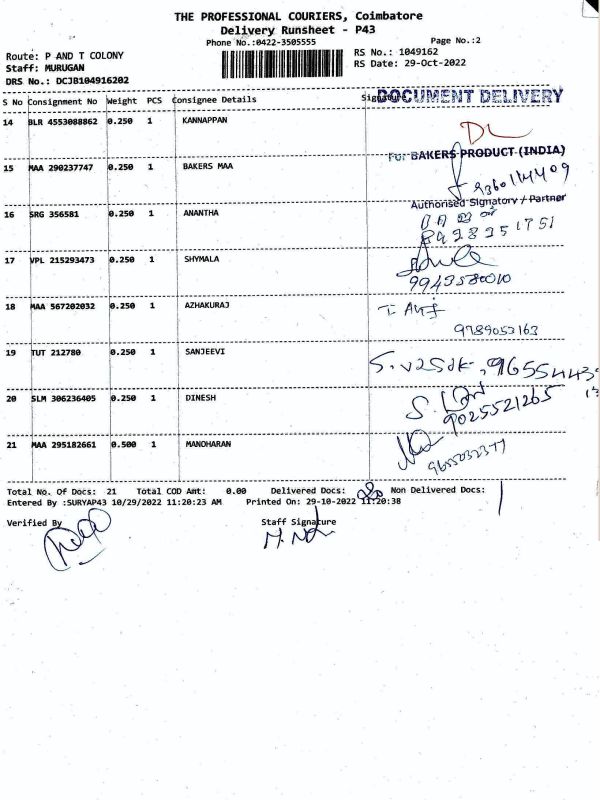 THE PROFESSIONAL COURIERS, Coimbatore
Delivery Runsheet - P43
Phone No.:0422-3505555
Page No.:2
Route: P AND T COLONY
RS No.: 1049162
Staff: MURUGAN
RS Date: 29-Oct-2022
DRS No.: DCJB104916202
S No Consignment No Weight PCS Consignee Details Signature
DOCUMENT DELIVERY
14 BLR 4553088862 0.250 1 KANNAPPAN
DL
For BAKERS PRODUCT (INDIA)
15 MAA 290237747 0.250 1 BAKERS MAA
9360114409
Authorised Signatory / Partner
16 SRG 356581 0.250 1 ANANTHA
8928351751
17 VPL 215293473 0.250 1 SHYMALA
9943580010
18 MAA 567202032 0.250 1 AZHAKURAJ
9789053163
19 TUT 212780 0.250 1 SANJEEVI
20 SLM 306236405 0.250 1 DINESH
9025521265
21 MAA 295182661 0.500 1 MANOHARAN
9655032377
Total No. Of Docs: 21 Total COD Amt: 0.00 Delivered Docs: 20 Non Delivered Docs: 1
Entered By :SURYAP43 10/29/2022 11:20:23 AM Printed On: 29-10-2022 11:20:38
Verified By Staff Signature